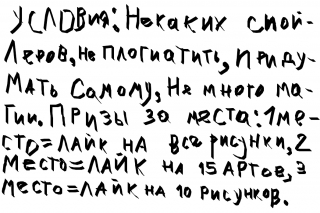 Условия: Некаких спой-
леров, не плогиатить, приду-
мать самому, не много ма-
гии. Призы за места: 1 ме-
сто=лайк на все рисунки, 2
место=лайк на 15 артов, 3
место=лайк на 10 рисунков.